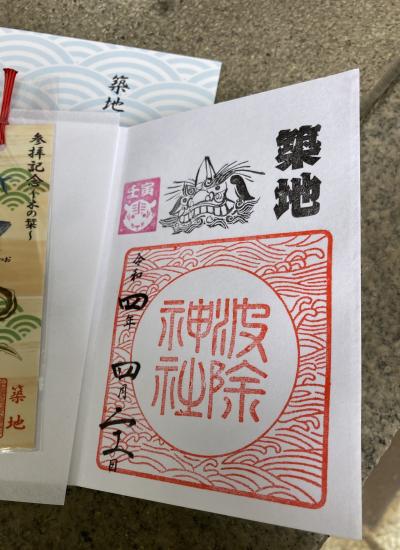 築地
壬寅
波除
神社
令和四年
四月
日
築地
参拝記念〜木の栞〜
築地